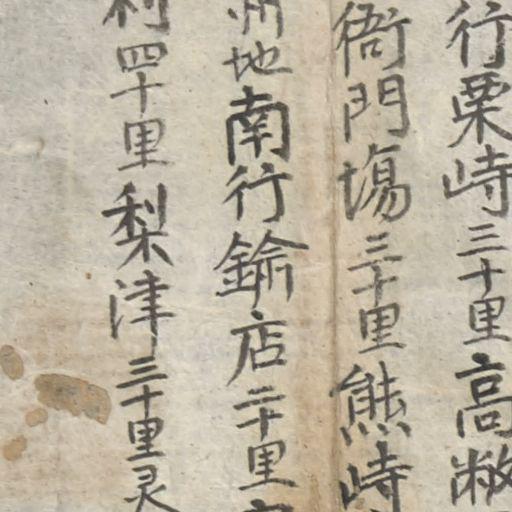 行栗峙三十里高敝
衙門場三十里熊峙
州地南行鍮店二十里
利四十里梨津三十里灵